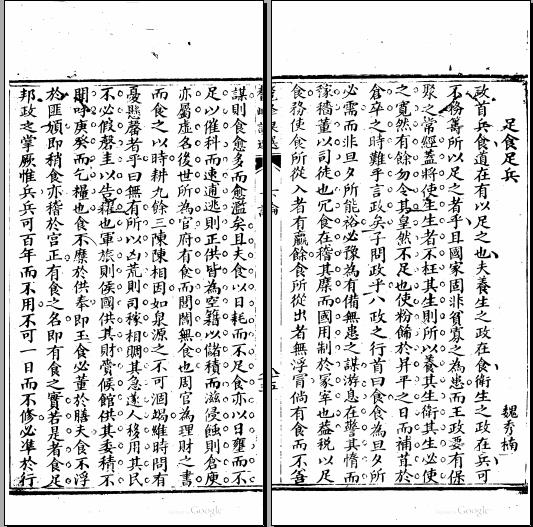 足食足兵
魏秀楠
政首兵食道在有以足之也夫養生之政在食衛生之政在兵可
不務籌所以足之者乎且國家固非貧寡之為患而王政要有保
聚之常經蓋將使生生者不枉其生則所以養其生衛其生必使
之寬然有餘勿令其皇然不足也使粉飾於昇平之日而補苴於
倉卒之時難乎言政矣子問政乎八政之行首曰食食為旦夕所
必需而非旦夕所能裕必豫為有備無患之謀游息在警其惰而
稼穡董以司徒也冗食在稽其糜而國用制於冢宰也益税以足
食務使食所從入者有贏餘食所從出者無浮冒倘有食而不善
謀則食愈多而愈濫矣且夫食以日耗而不足食亦以日壅而不
足以催科而逋逃則正供皆為空籍以儲積而滋侵蝕則倉庾
亦屬虛名後世所為官府有食而閭閻無食也周官為理財之書
而食之以時耕九餘三陳陳相因如泉源之不可涸竭雖時問有
憂懸罄者乎曰無有所以凶荒則司稼相賙其急遂人移用其民
不必假罄圭以告糴也軍旅則候國供其財賚候館供其委積不
聞呼庚癸而乞糧也食不糜於供奉即玉食必董於膳夫食不浮
於匪頒即稍食亦稽於宮正有食之名即有食之實若是者食足
邦政之掌厥惟兵兵可百年而不用不可一日而不修必準於行
Google
Google